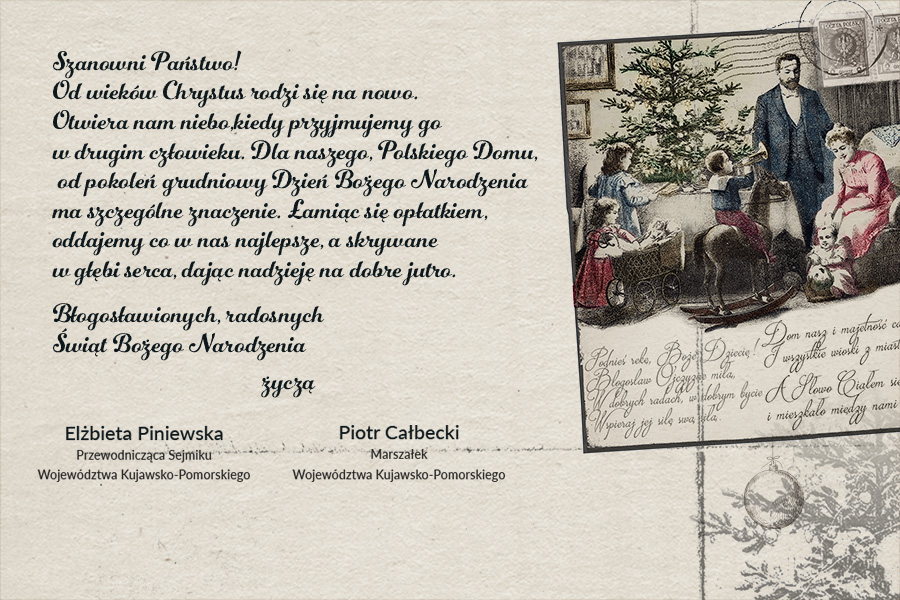 Szanowni Państwo!
Od wieków Chrystus rodzi się na nowo.
Otwiera nam niebo,kiedy przyjmujemy go
w drugim człowieku. Dla naszego, Polskiego Domu,
od pokoleń grudniowy Dzień Bożego Narodzenia
ma szczególne znaczenie. Łamiąc się opłatkiem,
oddajemy co w nas najlepsze, a skrywane
w głębi serca, dając nadzieję na dobre jutro.
Błogosławionych, radosnych
Świąt Bożego Narodzenia
życzą
Elżbieta Piniewska
Przewodnicząca Sejmiku
Województwa Kujawsko-Pomorskiego
Piotr Całbecki
Marszałek
Województwa Kujawsko-Pomorskiego
Podnieś rękę, Boże Dziecię!
Błogosław Ojczyznę miłą,
W dobrych radach, w dobrym bycie
Wspieraj jej siłę swą siłą,
Dom nasz i majętność
I wszystkie wioski z
A Słowo Ciałem
i mieszkało między nami